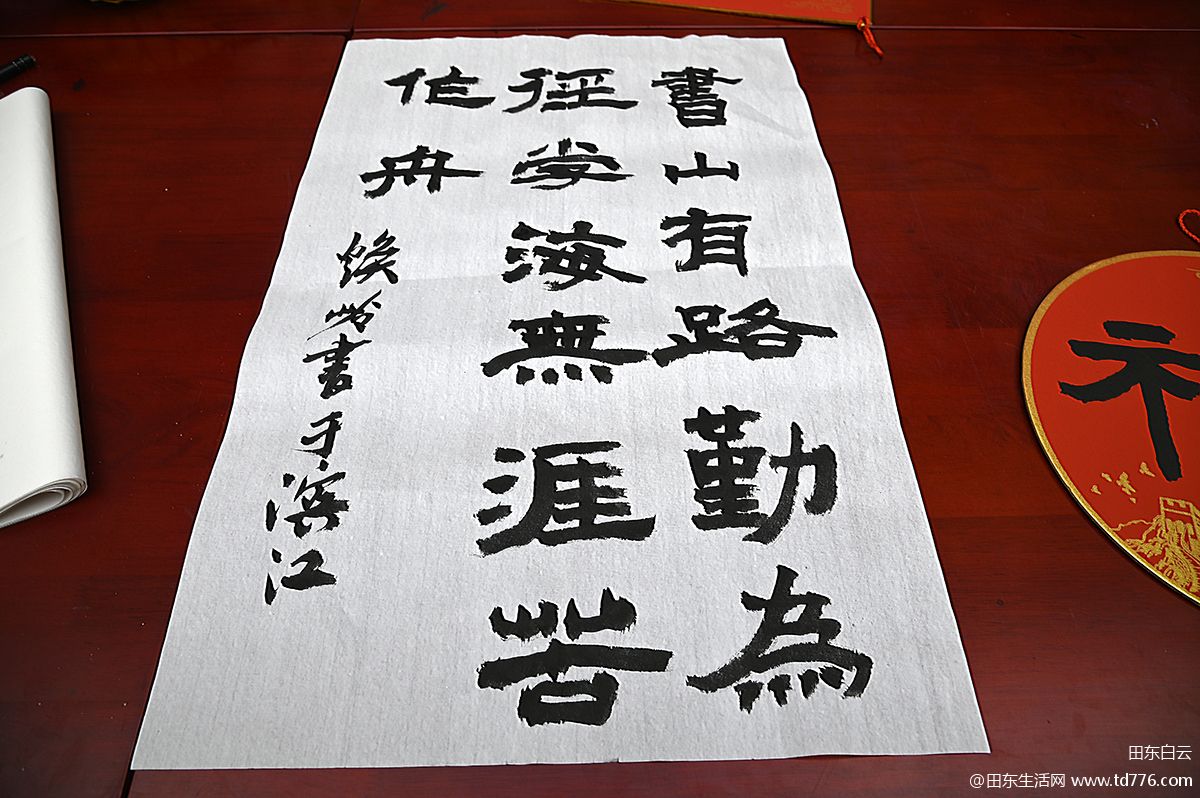 書山有路勤為
徑学海無涯苦
作舟
焕書于滨江
田东白云
@田东生活网 www.td776.com